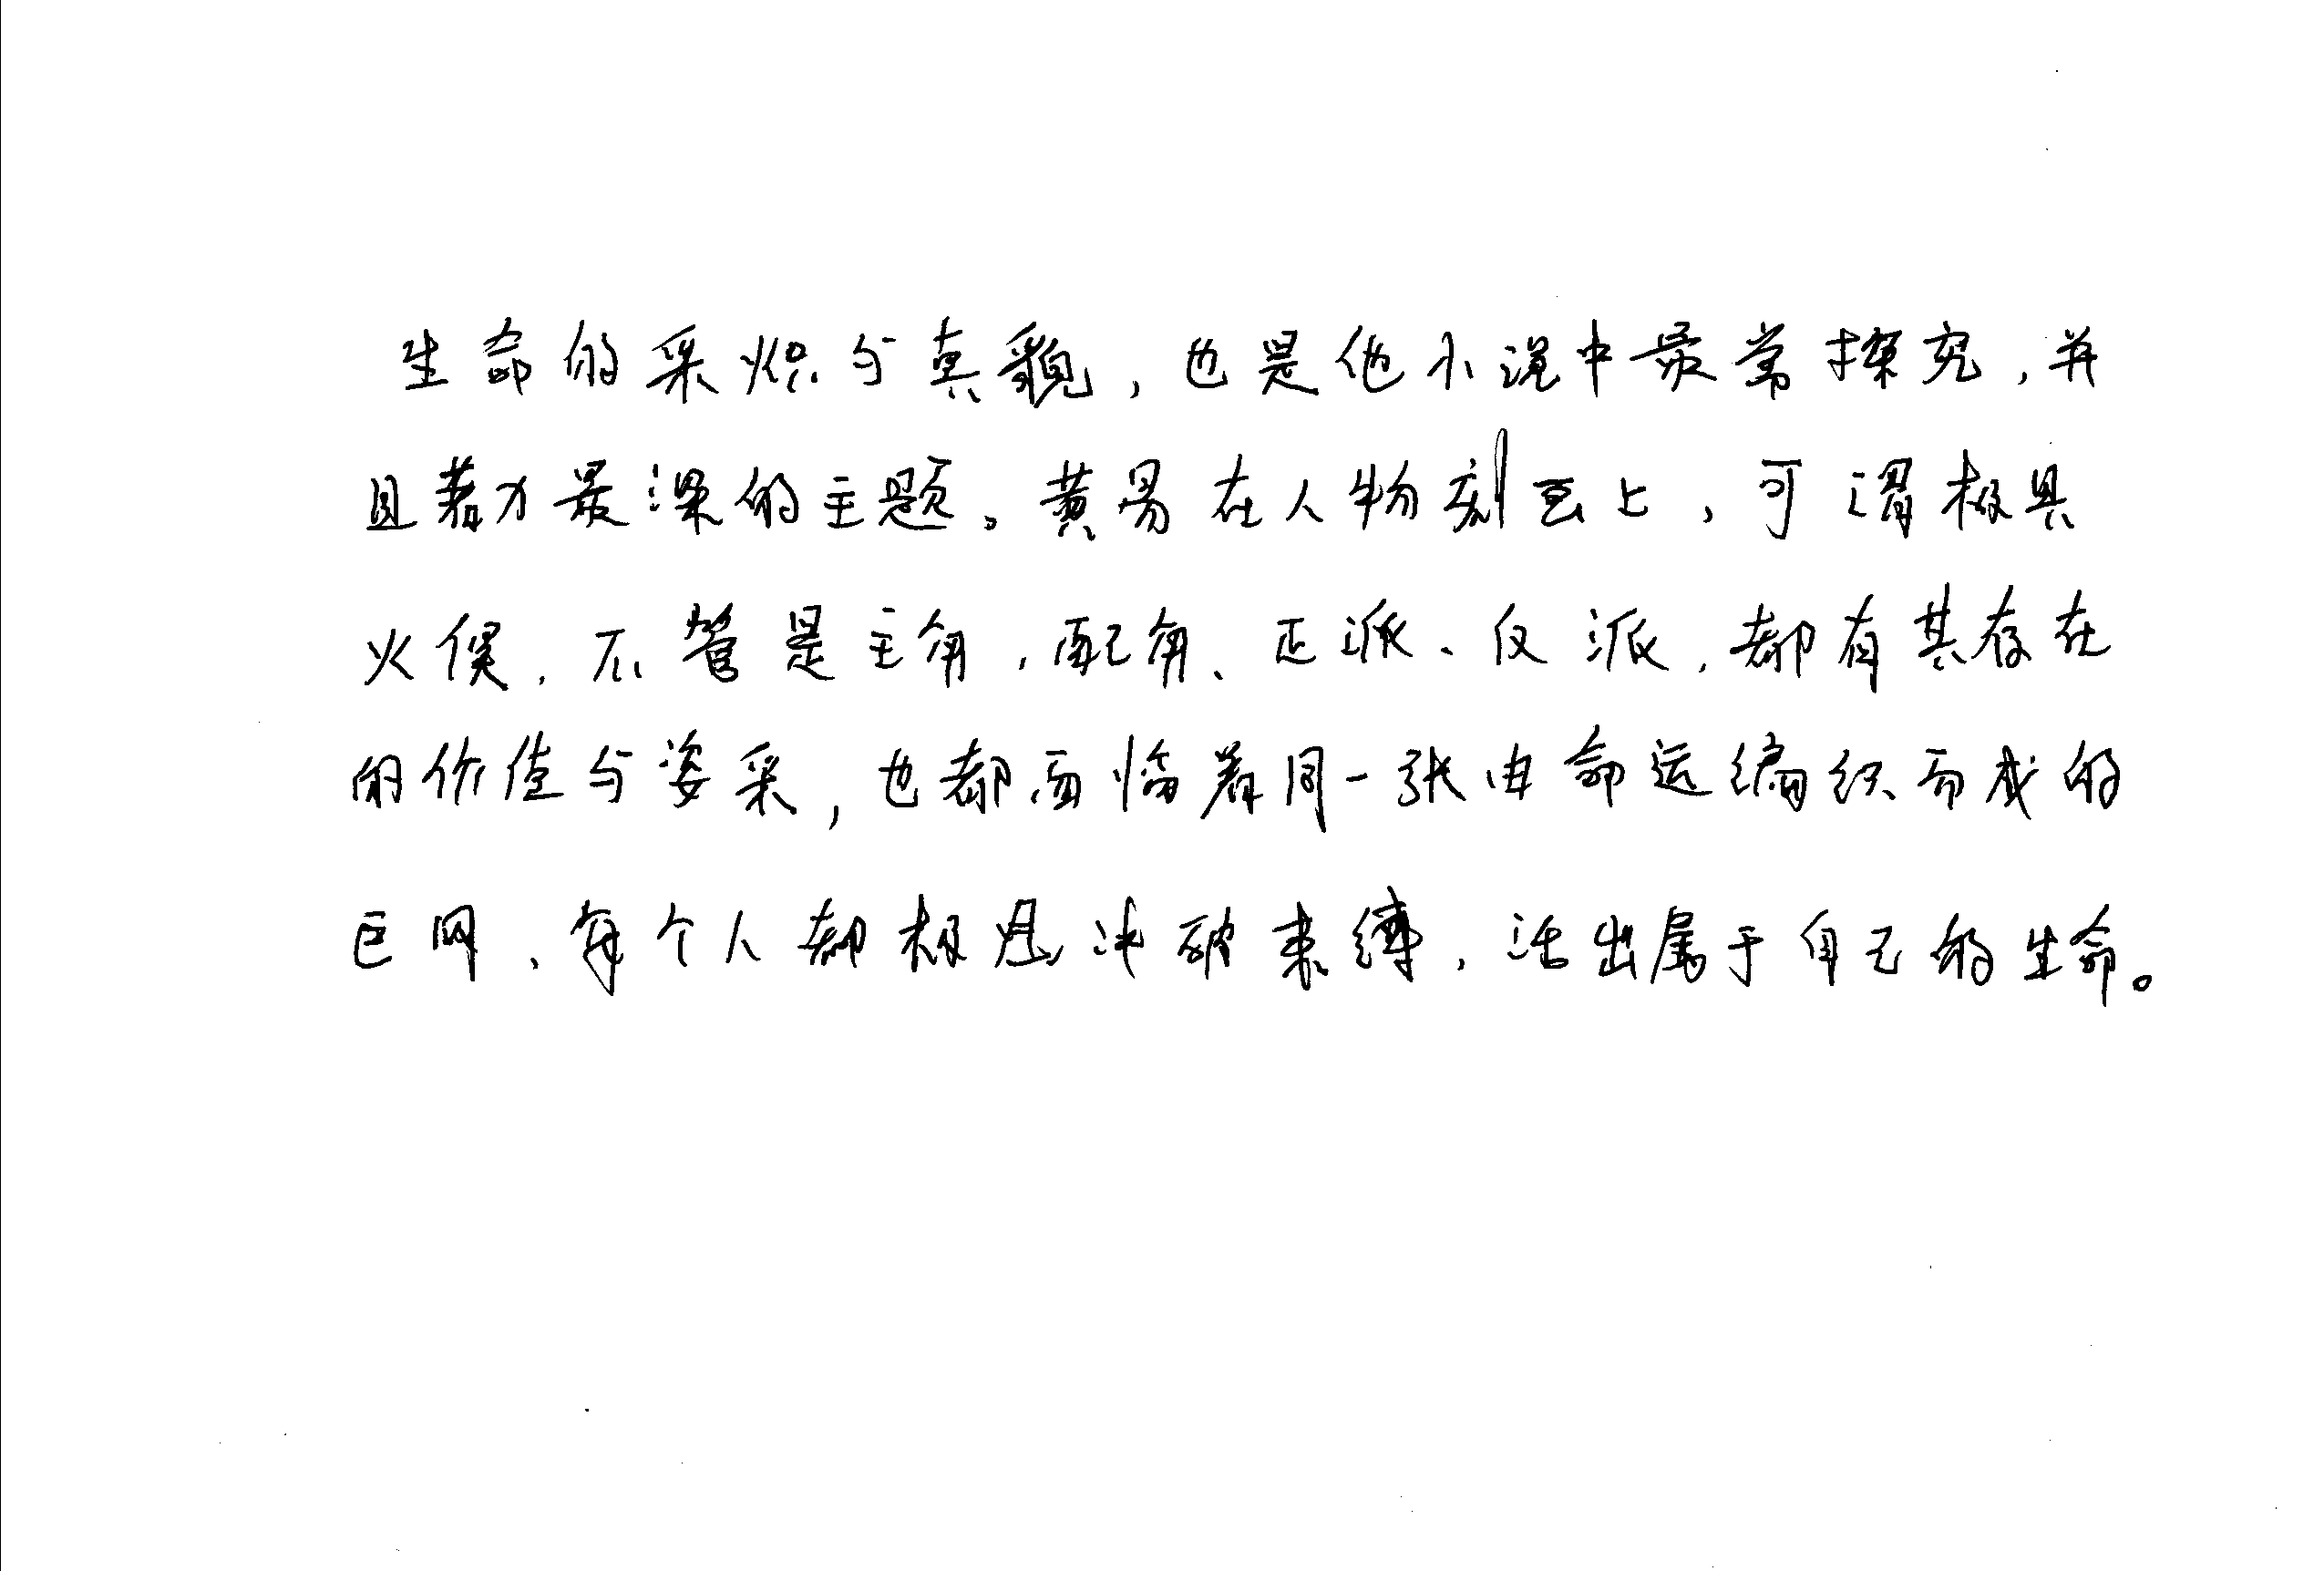 生命的采炽与真貌，也是他小说中最常探究，并
且著力最深的主题。黄易在人物刻画上，可谓极具
火候，不管是主角，配角、正派、反派，都有其存在
的价值与姿采，也都面临着同一张由命运编织而成的
巨网、每个人都极思冲破束缚，活出属于自己的生命。